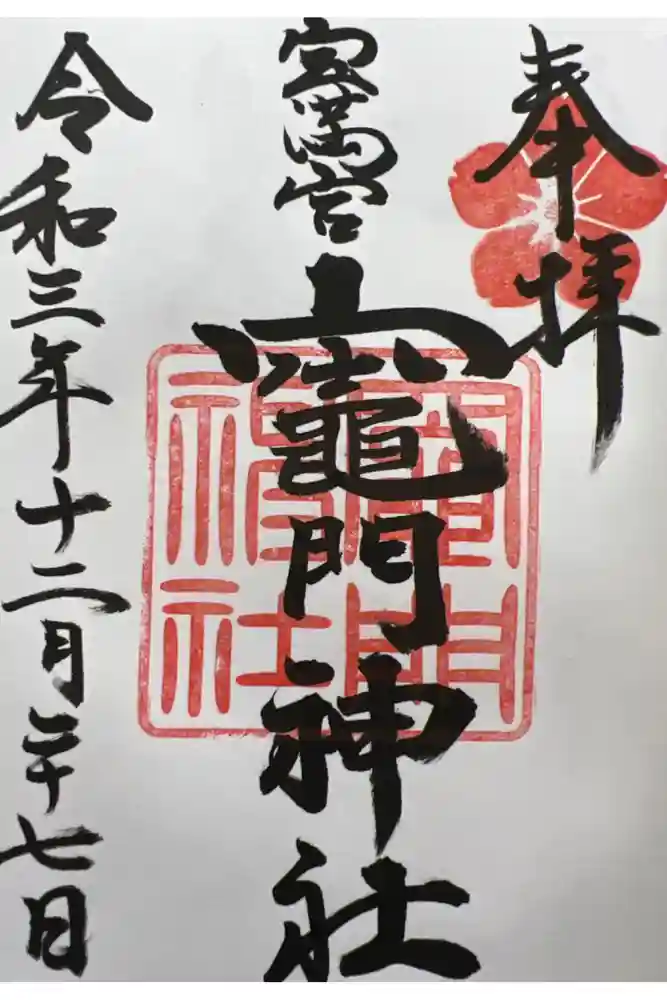 奉拝
宝満宮
竈門神社
竈門
神社
令和三年十二月二十七日